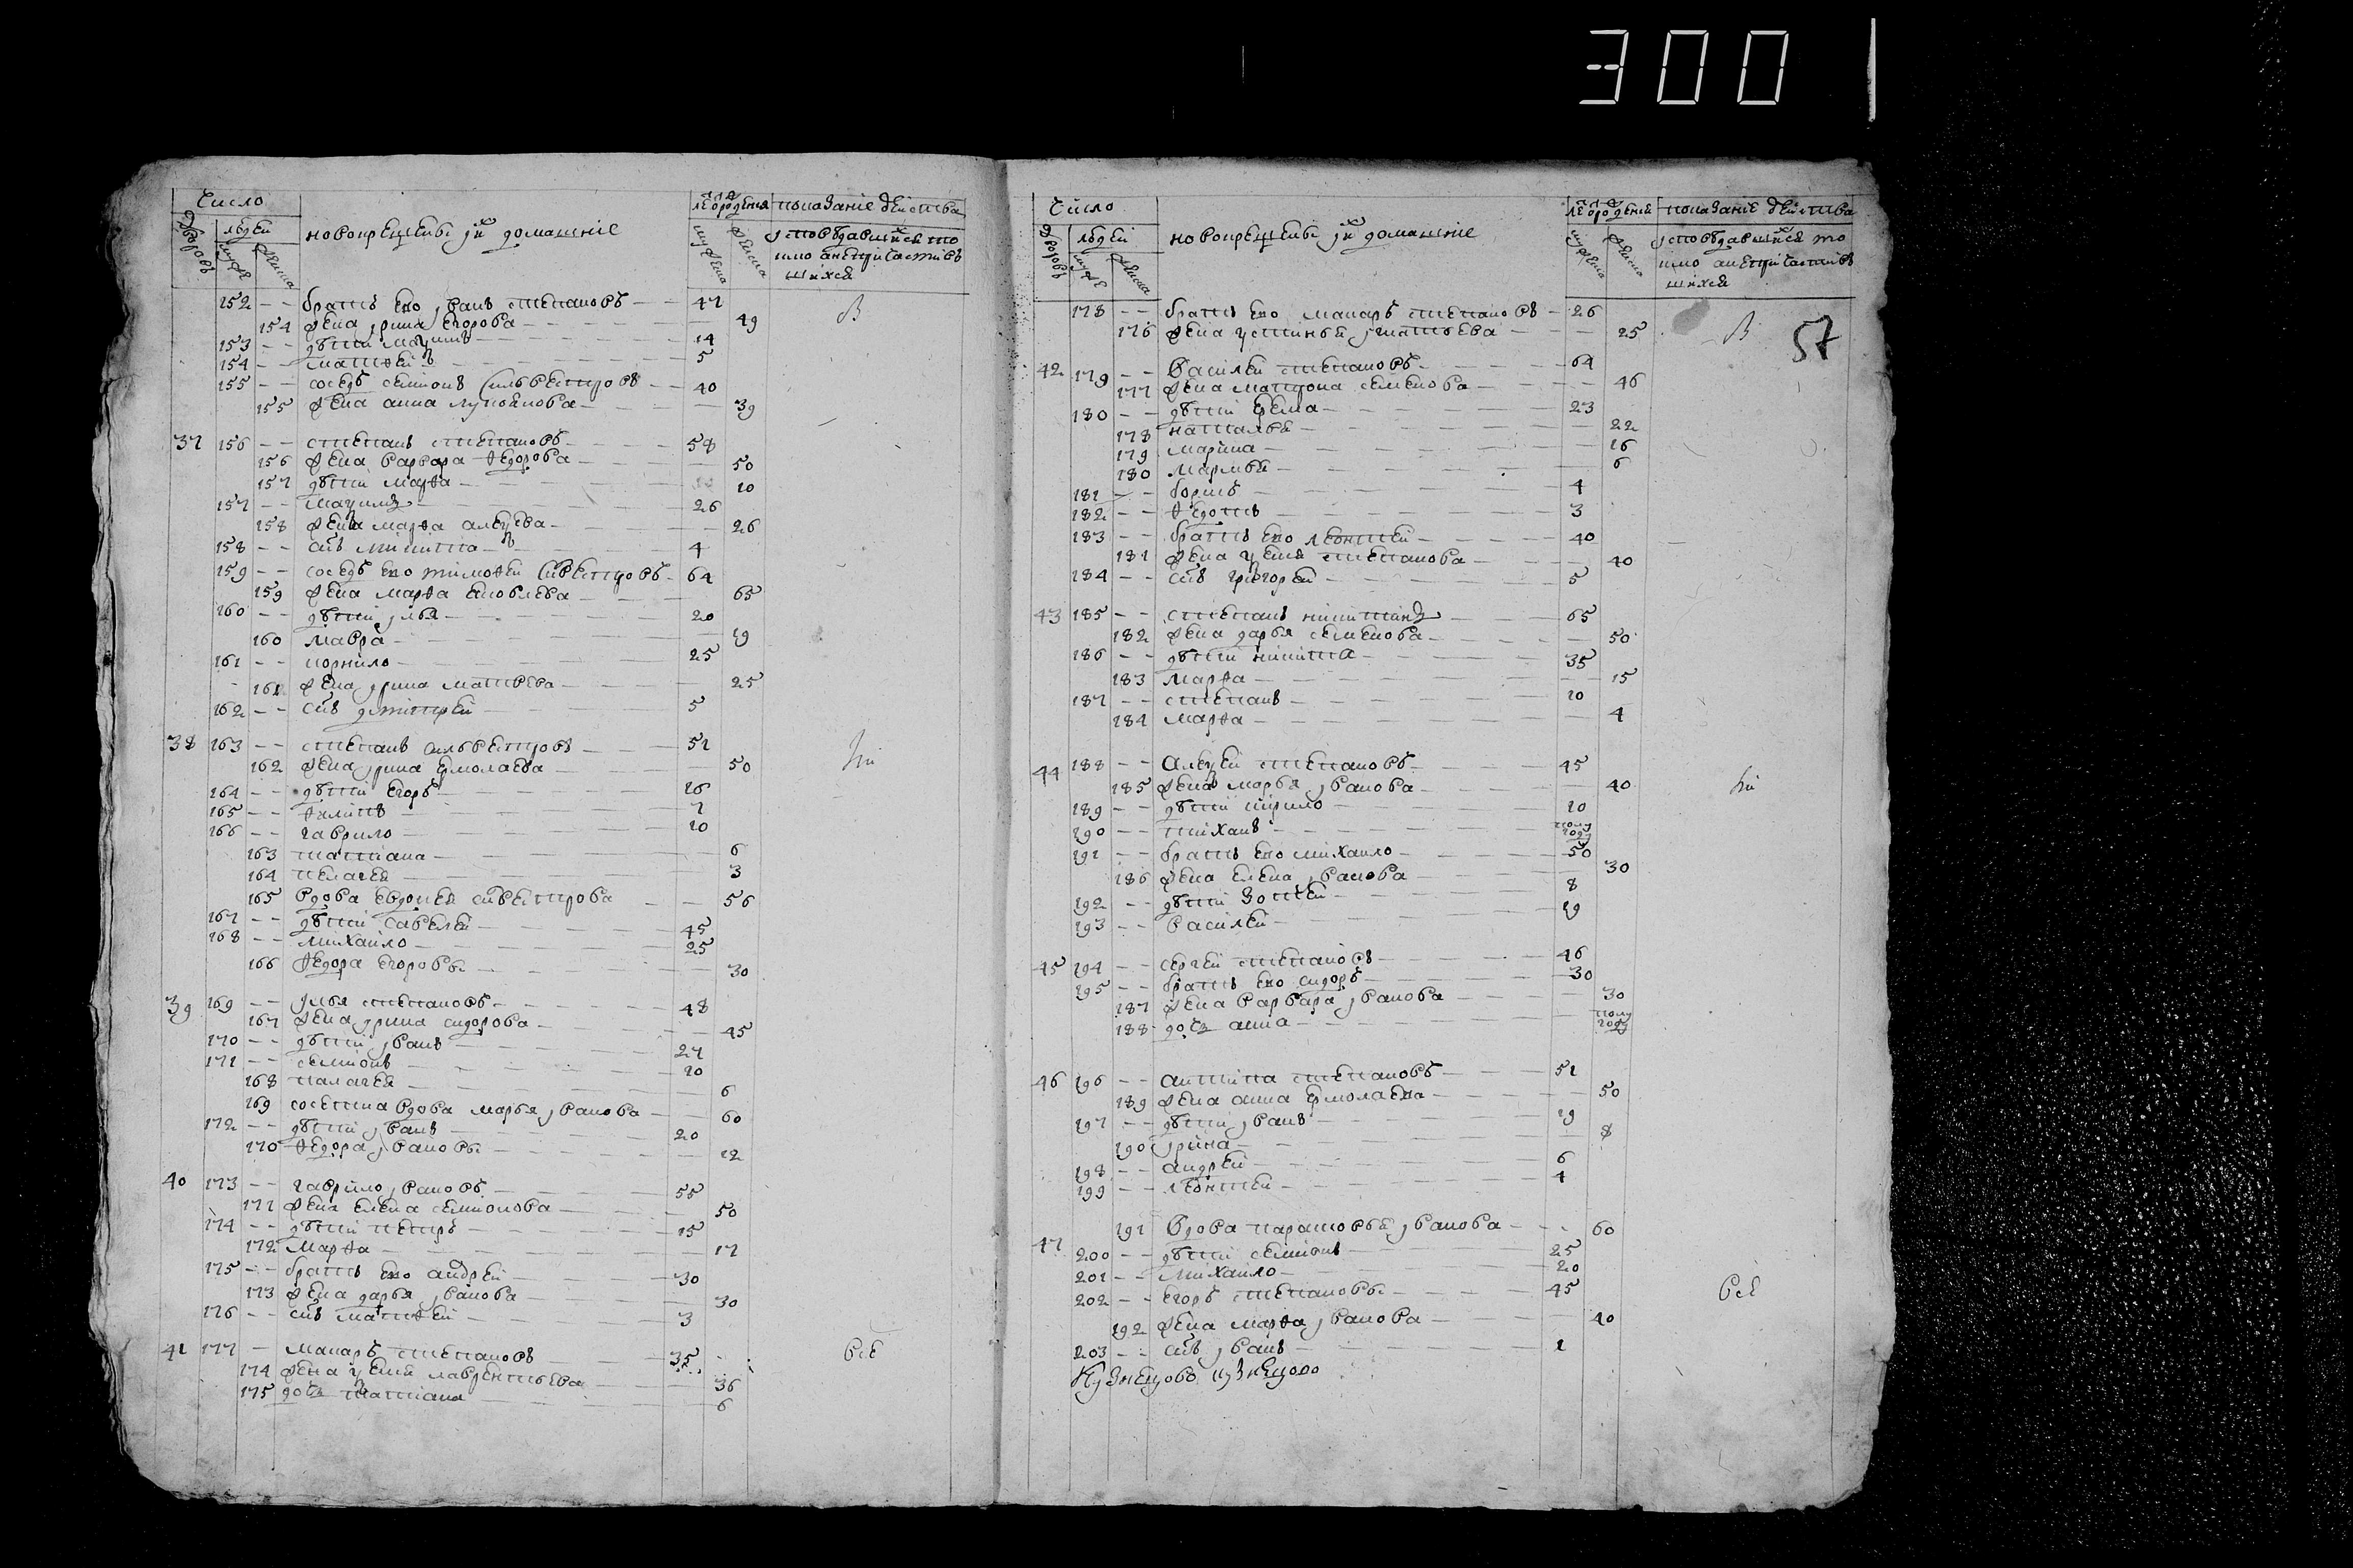 300
Число
Дворовъ
людей
мужеска
женска
новокрещены и ихъ домашнїе
лѣта от рожденїя
мужеска
женска
показанїе действа
исповѣдавшихся то
кмо а непричастивъ
шихся
152 -- братъ ево иванъ степановъ 47
154 жена ирина егорова 49
153 -- дѣти мақимъ 14
154 -- матфей 5
155 -- соседъ семионъ силвестровъ 40
155 жена анна лукоянова 39
37 156 -- степанъ степановъ 58
156 жена варвара федорова 50
157 дѣти марфа 10
157 -- мақимъ 26
158 жена марфа алеқеева 26
158 -- снъ никита 4
159 -- соседъ ево тимофей сивестровъ 64
159 жена марфа яковлева 65
160 -- дѣти илья 20
160 мавра 19
161 -- корнило 25
161 жена ирина матвѣева 25
162 -- снъ дмитрей 5
38 163 -- степанъ силвестровъ 51
162 жена ирина ермолаева 50
164 -- дѣти егоръ 16
165 -- филипъ 7
166 -- гаврило 10
163 татиана 6
164 пелагея 3
165 вдова евдокея сивестрова 56
167 -- дѣти савелей 45
168 -- михайло 25
166 федора егоровы 30
39 169 -- илья степановъ 48
167 жена ирина сидорова 45
170 -- дѣти иванъ 27
171 -- семионъ 10
168 палагея 6
169 соседка вдова марья иванова 60
172 -- дѣти иванъ 20
170 федора ивановы 12
40 173 -- гаврило ивановъ 55
171 жена елена семионова 50
174 -- дѣти петръ 15
172 марфа 17
175 -- братъ ево андрей 30
173 жена дарья иванова 30
176 -- снъ матфей 3
41 177 - макаръ степановъ 35 всѣ
174 жена ксения лаврентьева 36
175 дочь татиана 6
Число
Дворовъ
людей
мужеска
женска
новокрещены и ихъ домашнїе
лѣта от рожденїя
мужеска
женска
показанїе действа
исповѣдавшихся то
кмо а непричастив
шихся
57
178 -- братъ ево макаръ степановъ 26
176 жена устинья игнатьева 25
42 179 -- василей степановъ 64
177 жена матрона семенова 46
180 -- дѣти ерема 23
178 наталья 22
179 марина 16
180 марья 6
181 -- борисъ 4
182 -- федотъ 3
183 -- братъ ево леонтей 40
181 жена ксения степанова 40
184 -- снъ григорей 5
43 185 -- степанъ никитинъ 65
182 жена дарья семенова 50
186 -- дѣти никита 35
183 марфа 15
187 -- степанъ 10
184 марфа 4
44 188 -- алеқей степановъ 45
185 жена марья иванова 40
189 -- дѣти кирило 10
190 -- тиханъ полу году
191 -- братъ ево михаило 50
186 жена елена иванова 30
192 -- дѣти зотей 8
193 -- василей 19
45 194 -- сергей степановъ 46
195 -- братъ ево сидоръ 30
187 жена варвара иванова 30
188 дочь анна полу году
46 196 -- антипа степановъ 51
189 жена анна ермолаева 50
197 -- дѣти иванъ 19
190 ирина 8
198 -- андрей 6
199 -- леонтей 4
47 191 вдова парасковья иванова 60
200 -- дѣти семионъ 25
201 -- михайло 20
202 -- егоръ степановы 45 всѣ
192 жена марфа иванова 40
203 -- снъ иванъ 1
Кузнецово кузнецово